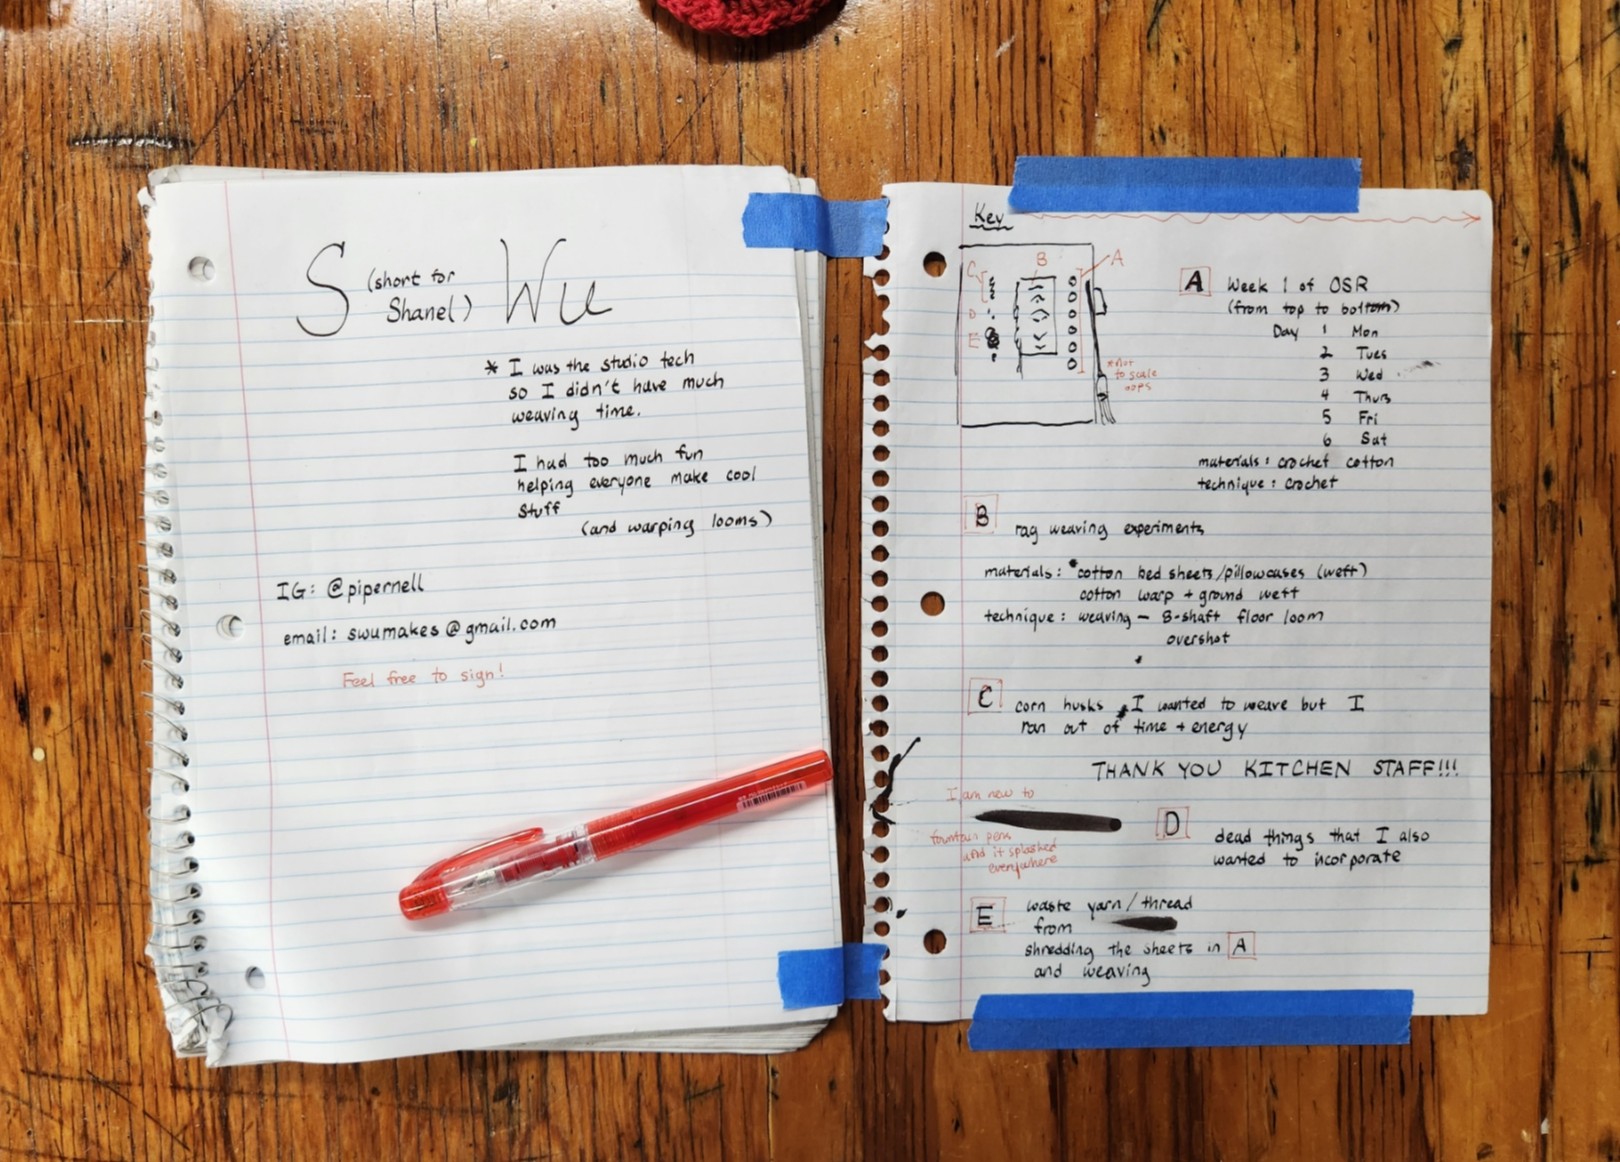 S (short for Shanel) Wu
* I was the studio tech
so I didn't have much
weaving time.
I had too much fun
helping everyone make cool
stuff
(and warping looms)
IG: @pipernell
email: swumakes@gmail.com
Feel free to sign!
Key
C
B
A
D
E
*not
to scale
oops
A Week 1 of OSR
(from top to bottom)
Day 1 Mon
2 Tues
3 Wed
4 Thurs
5 Fri
6 Sat
materials: crochet cotton
technique: crochet
B
rag weaving experiments
materials: cotton bed sheets/pillowcases (weft)
cotton warp + ground weft
technique: weaving – 8-shaft floor loom
overshot
C corn husks I wanted to weave but I
ran out of time + energy
THANK YOU KITCHEN STAFF!!!
I am new to
fountain pens
and it splashed
everywhere
D dead things that I also
wanted to incorporate
E waste yarn/thread
from
shredding the sheets in A
and weaving